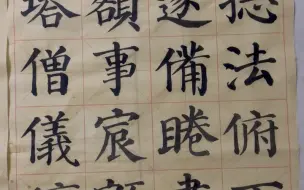 塔額遂捴
僧事備法
儀宸睠俯